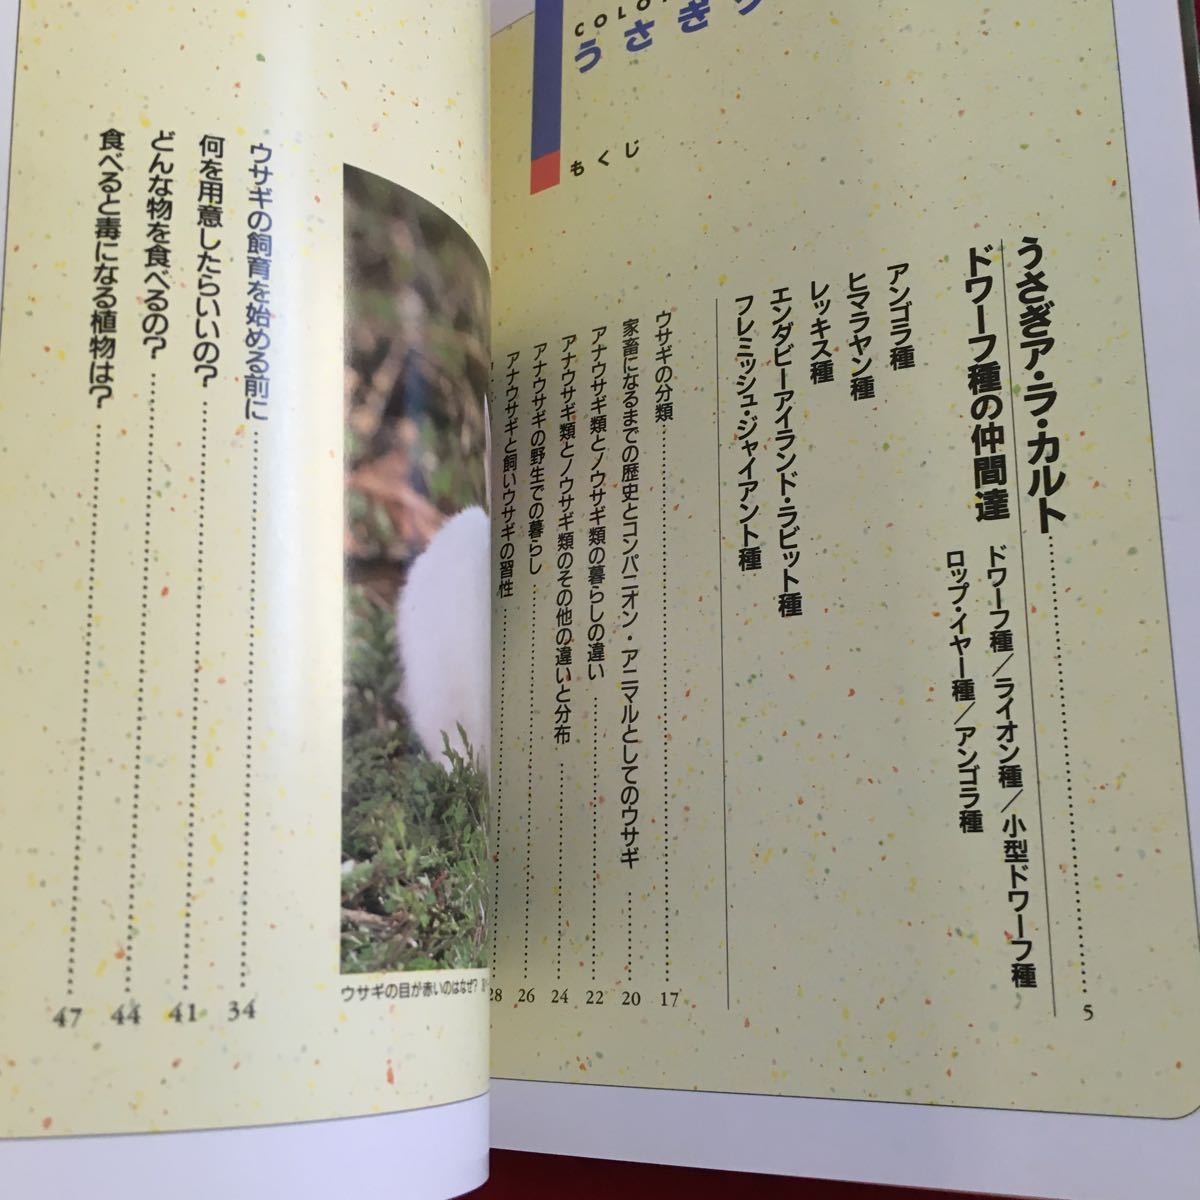 COLO
うさぎ
もくじ
うさぎア・ラ・カルト……5
ドワーフ種の仲間達
ドワーフ種/ライオン種/小型ドワーフ種
ロップ・イヤー種/アンゴラ種
アンゴラ種
ヒマラヤン種
レッキス種
エンダビーアイランド・ラビット種
フレミッシュ・ジャイアント種
ウサギの分類……17
家畜になるまでの歴史とコンパニオン・アニマルとしてのウサギ……20
アナウサギ類とノウサギ類の暮らしの違い……22
アナウサギ類とノウサギ類のその他の違いと分布……24
アナウサギの野生での暮らし……26
アナウサギと飼いウサギの習性……28
ウサギの目が赤いのはなぜ?
ウサギの飼育を始める前に……34
何を用意したらいいの?……41
どんな物を食べるの?……44
食べると毒になる植物は?……47